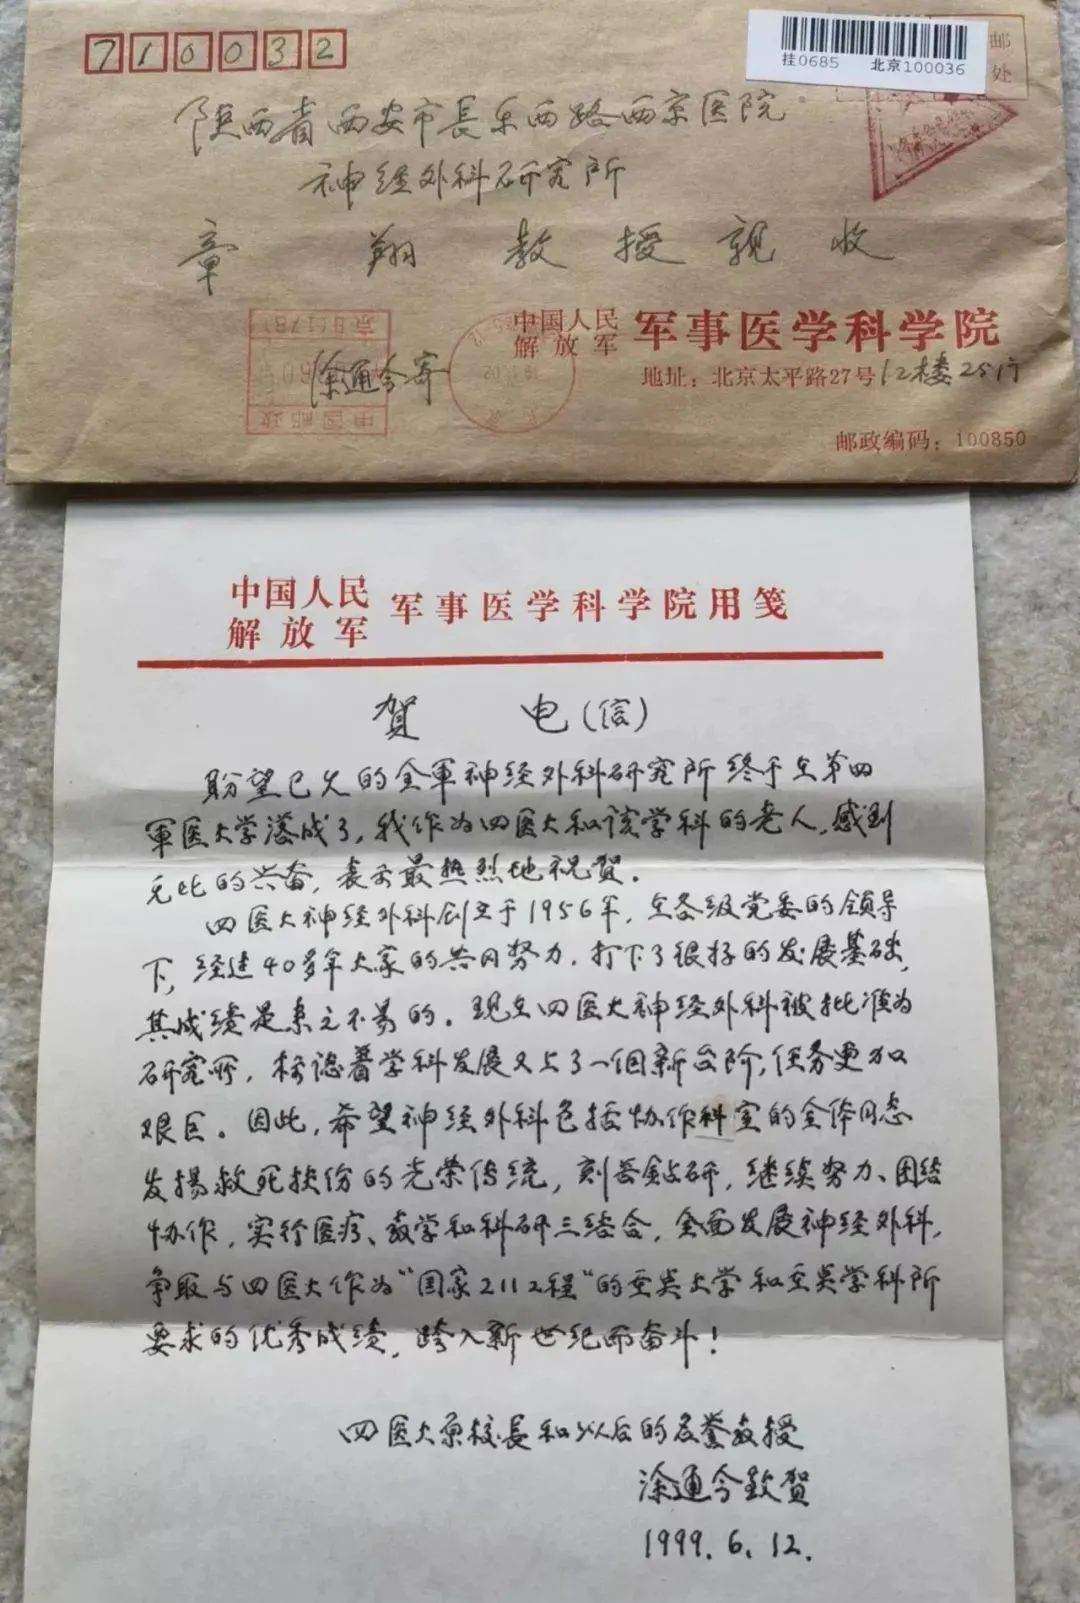 710032
挂0685 北京100036
邮
处
陕西省西安市長乐西路西京医院
神经外科研究所
章 翔 教授親收
中国人民
解放军
军事医学科学院
涂通今寄
地址：北京太平路27号12楼25门
中国邮政
邮政编码：100850
中国人民
解放军
军事医学科学院用笺
贺 电(信)
盼望已久的全軍神经外科研究所终于在第四
軍医大学落成了，我作为四医大和该学科的老人，感到
无比的兴奋，表示最热烈地祝贺。
四医大神经外科创立于1956年，在各级党委的领导
下，经过40多年大家的共同努力，打下了很好的发展基础，
其成绩是来之不易的。现在四医大神经外科被批准为
研究所，标志着学科发展又上了一個新台阶，任务更加
艰巨。因此，希望神经外科包括协作科室的全体同志
发揚救死扶伤的光荣传统，刻苦鉆研，继续努力、团结
协作，实行医疗、教学和科研三结合，全面发展神经外科，
争取与四医大作为“国家211工程”的重点大学和重点学科所
要求的优秀成绩，跨入新世纪而奋斗！
四医大原校長和以后的名誉教授
涂通今致贺
1999.6.12.